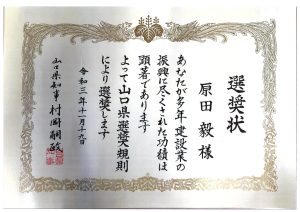 選奨状
原田毅様
あなたが多年建設業の
振興に尽くされた功績は
顕著であります
よって山口県選奨規則
により選奨します
令和三年十一月十九日
山口県知事 村岡嗣政